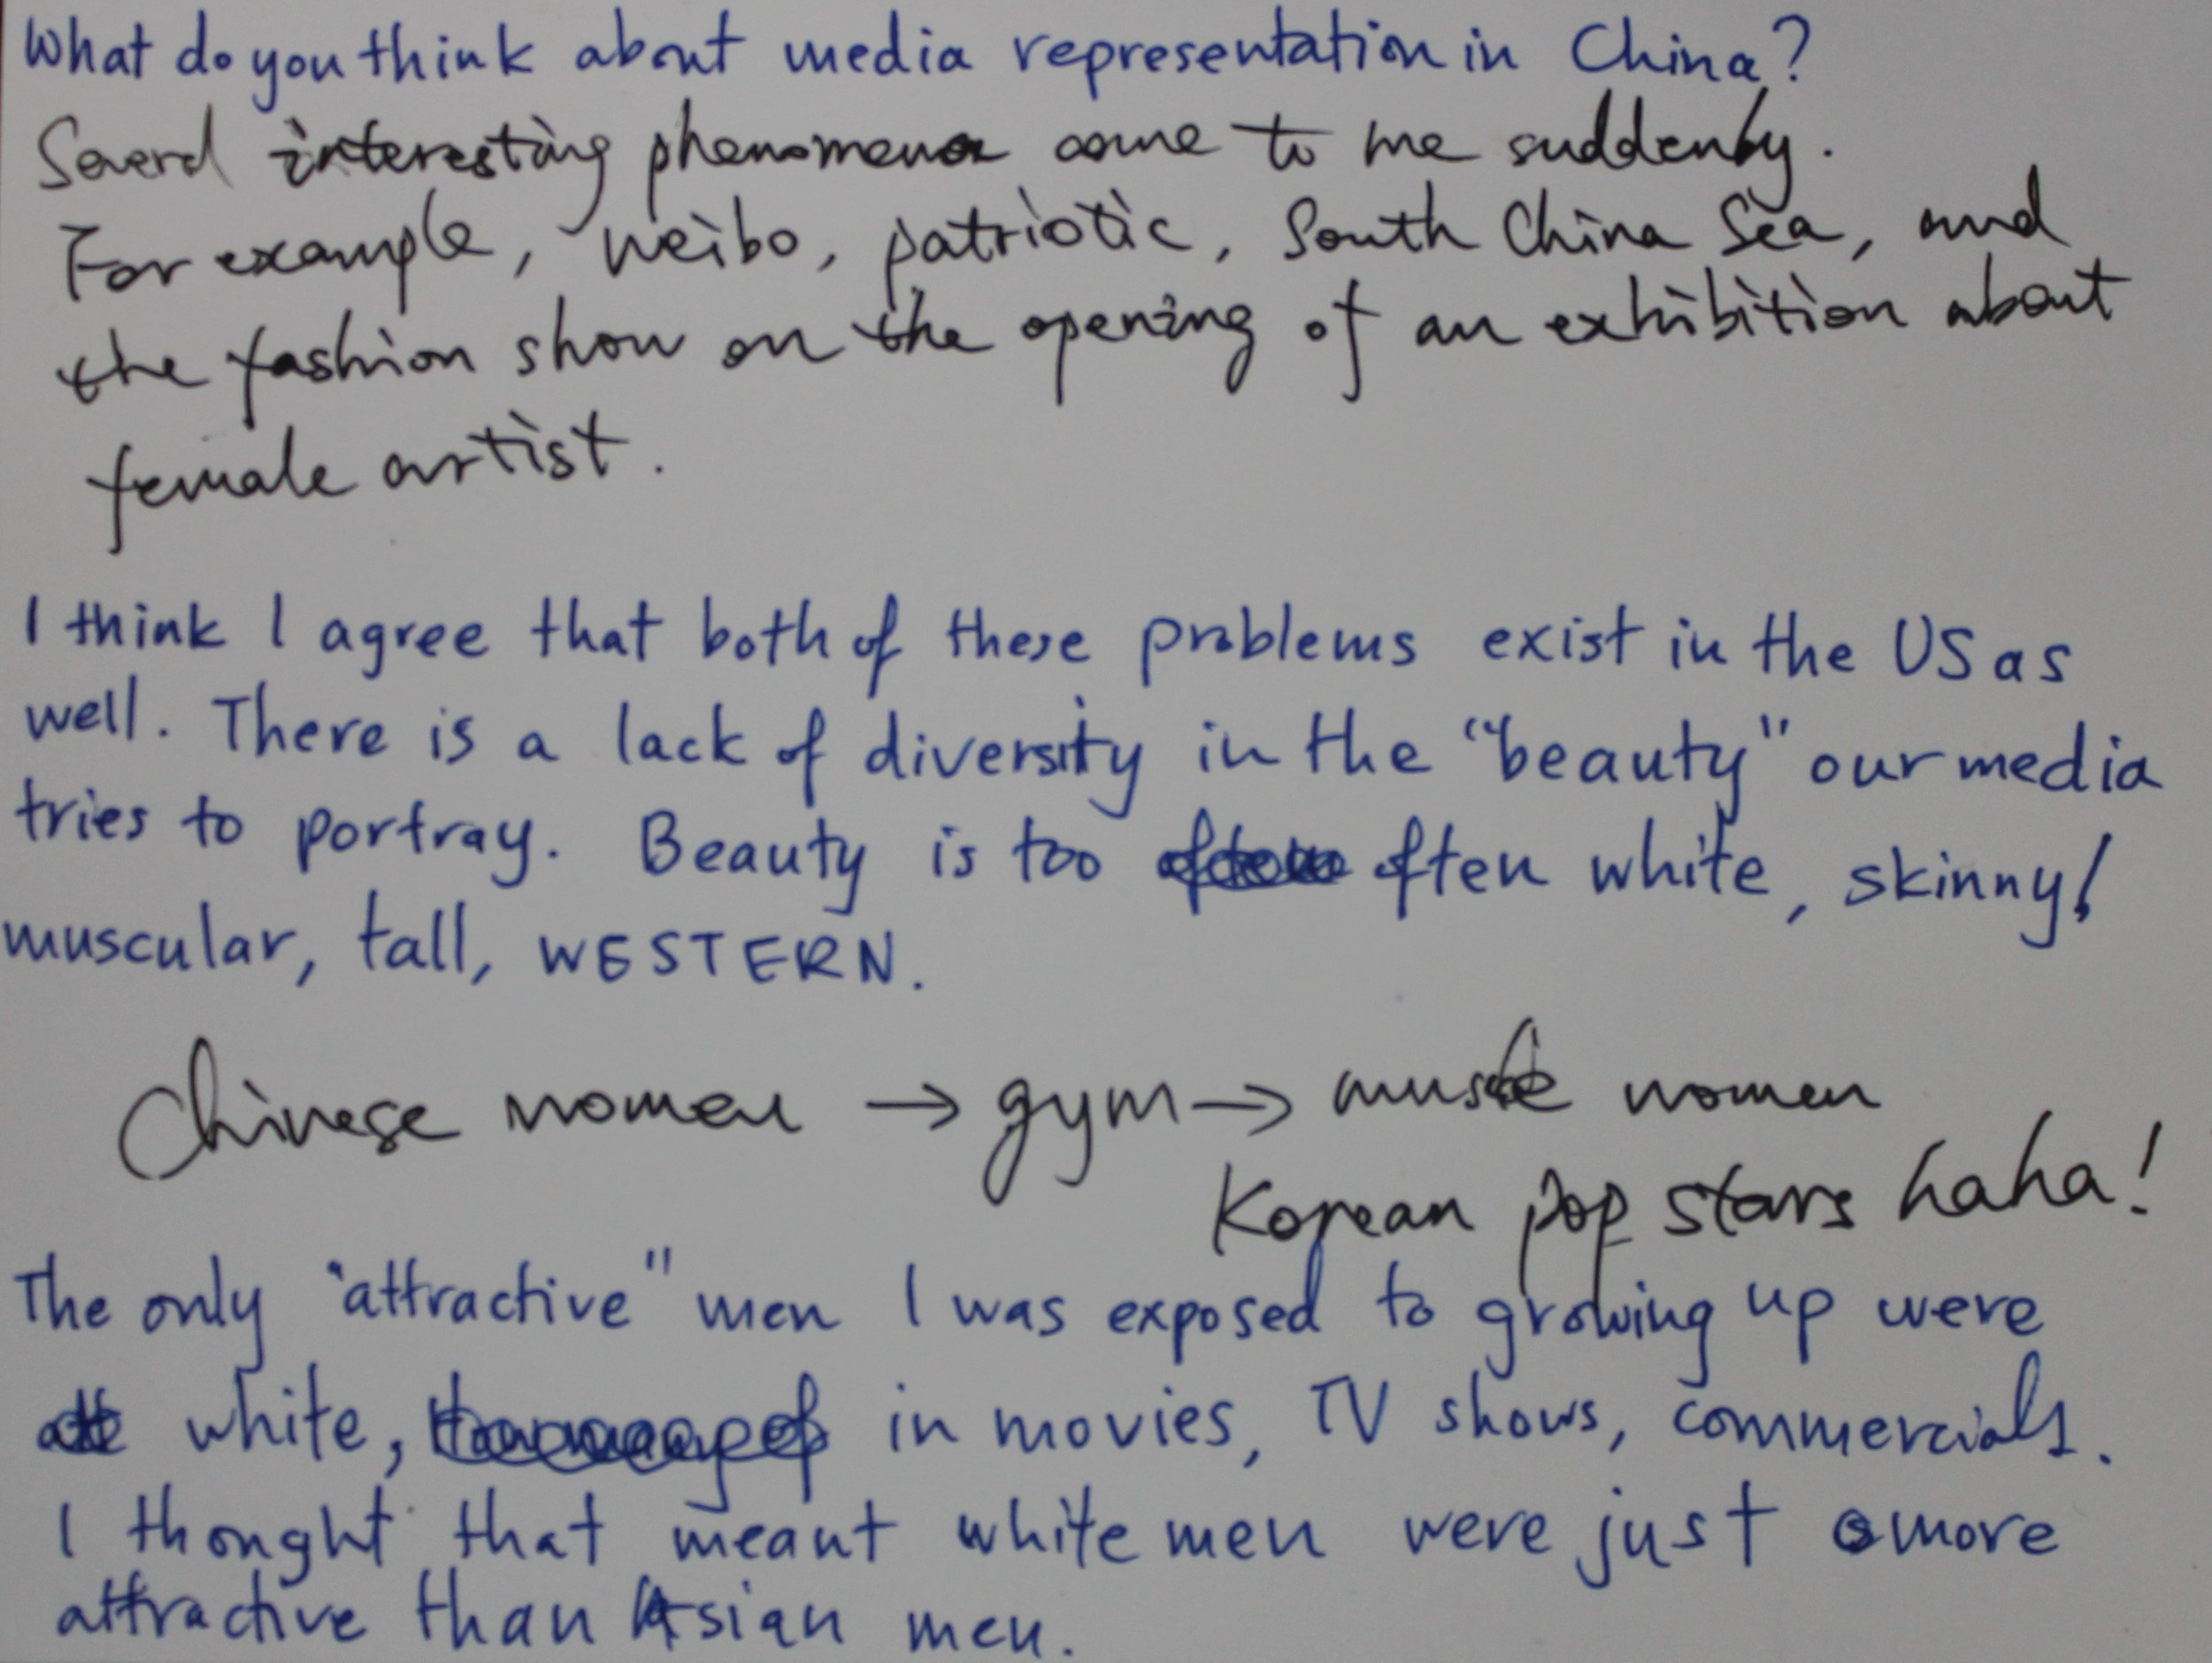 What do you think about media representation in China?
Several interesting phenomena come to me suddenly.
For example, weibo, patriotic, South China Sea, and
the fashion show on the opening of an exhibition about
female artist.
I think I agree that both of these problems exist in the US as
well. There is a lack of diversity in the "beauty" our media
tries to portray. Beauty is too often white, skinny/
muscular, tall, WESTERN.
Chinese women → gym → muscle women
Korean pop stars haha!
The only "attractive" men I was exposed to growing up were
white, in movies, TV shows, commercials.
I thought that meant white men were just more
attractive than Asian men.